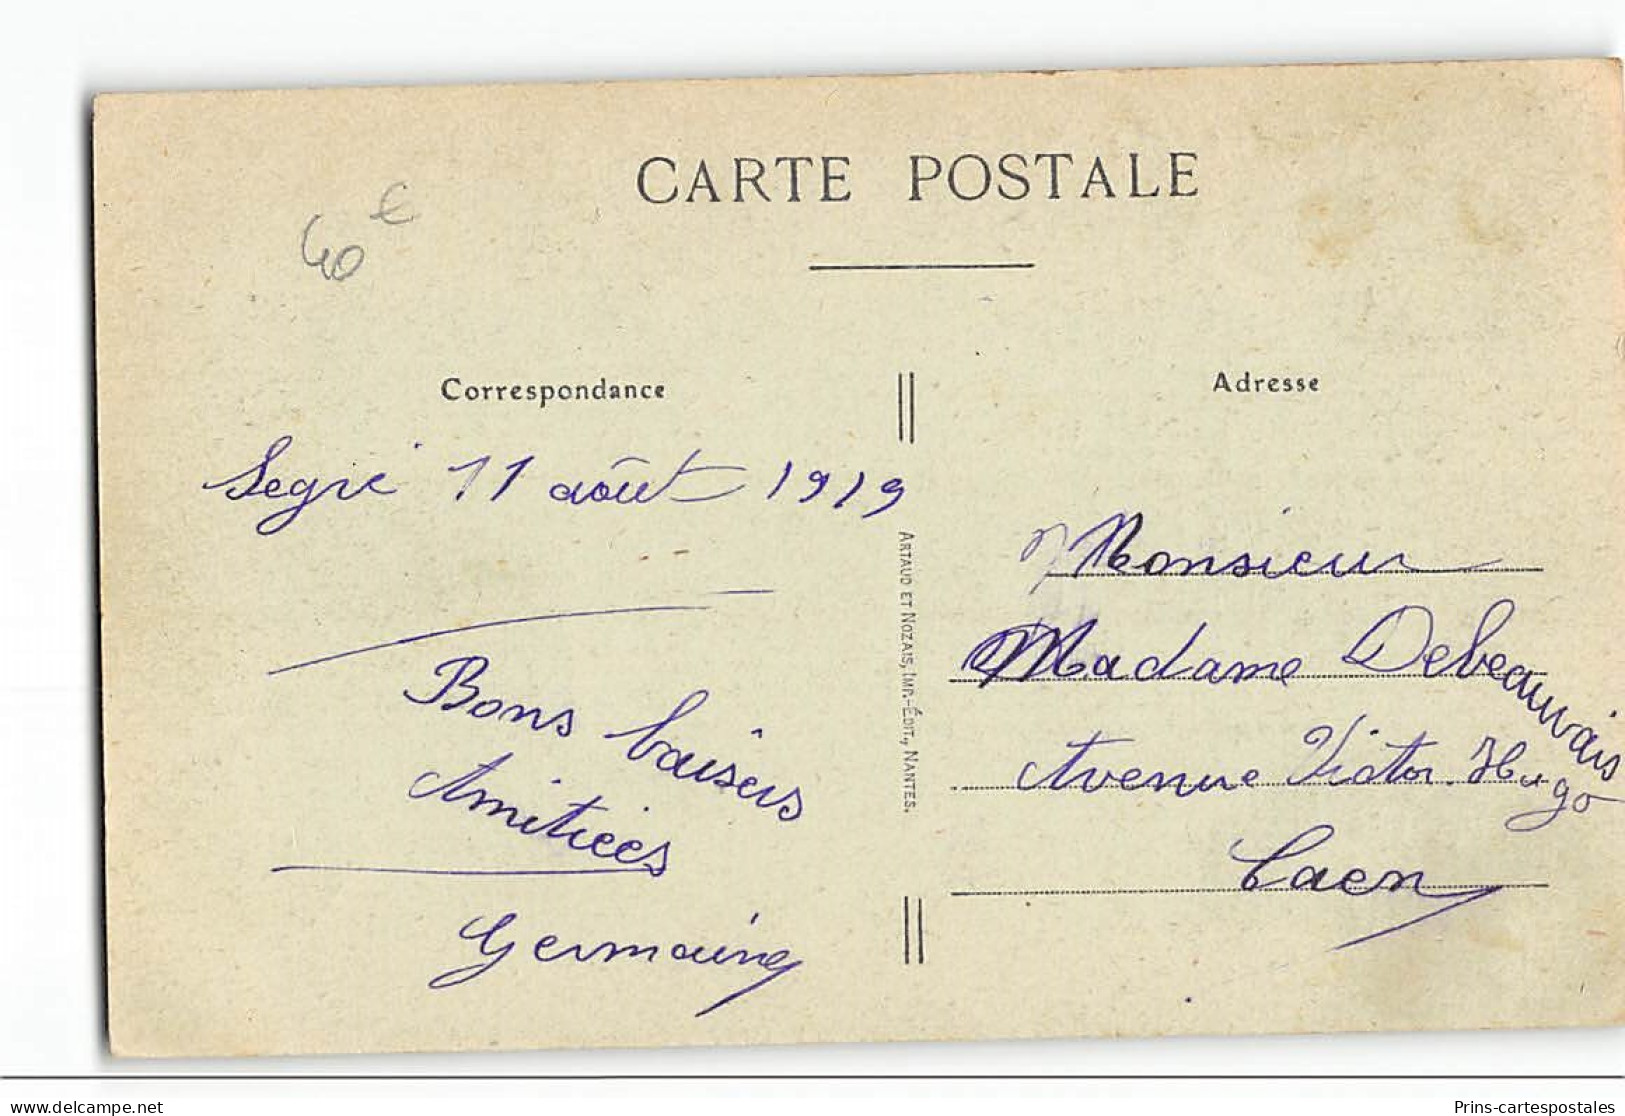 CARTE POSTALE
40 €
Correspondance
Segré 11 aôut 1919
Bons baisers
Amitiées
Germaine
ARTAUD ET NOZAIS, IMP.-ÉDIT., NANTES.
Adresse
Monsieur
Madame Debeauvais
Avenue Victor Hugo
Caen
www.delcampe.net
Prins-cartespostales